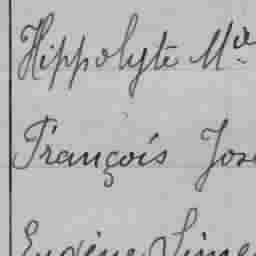 Hippolyte Mie
François Jos
Eugène Sime